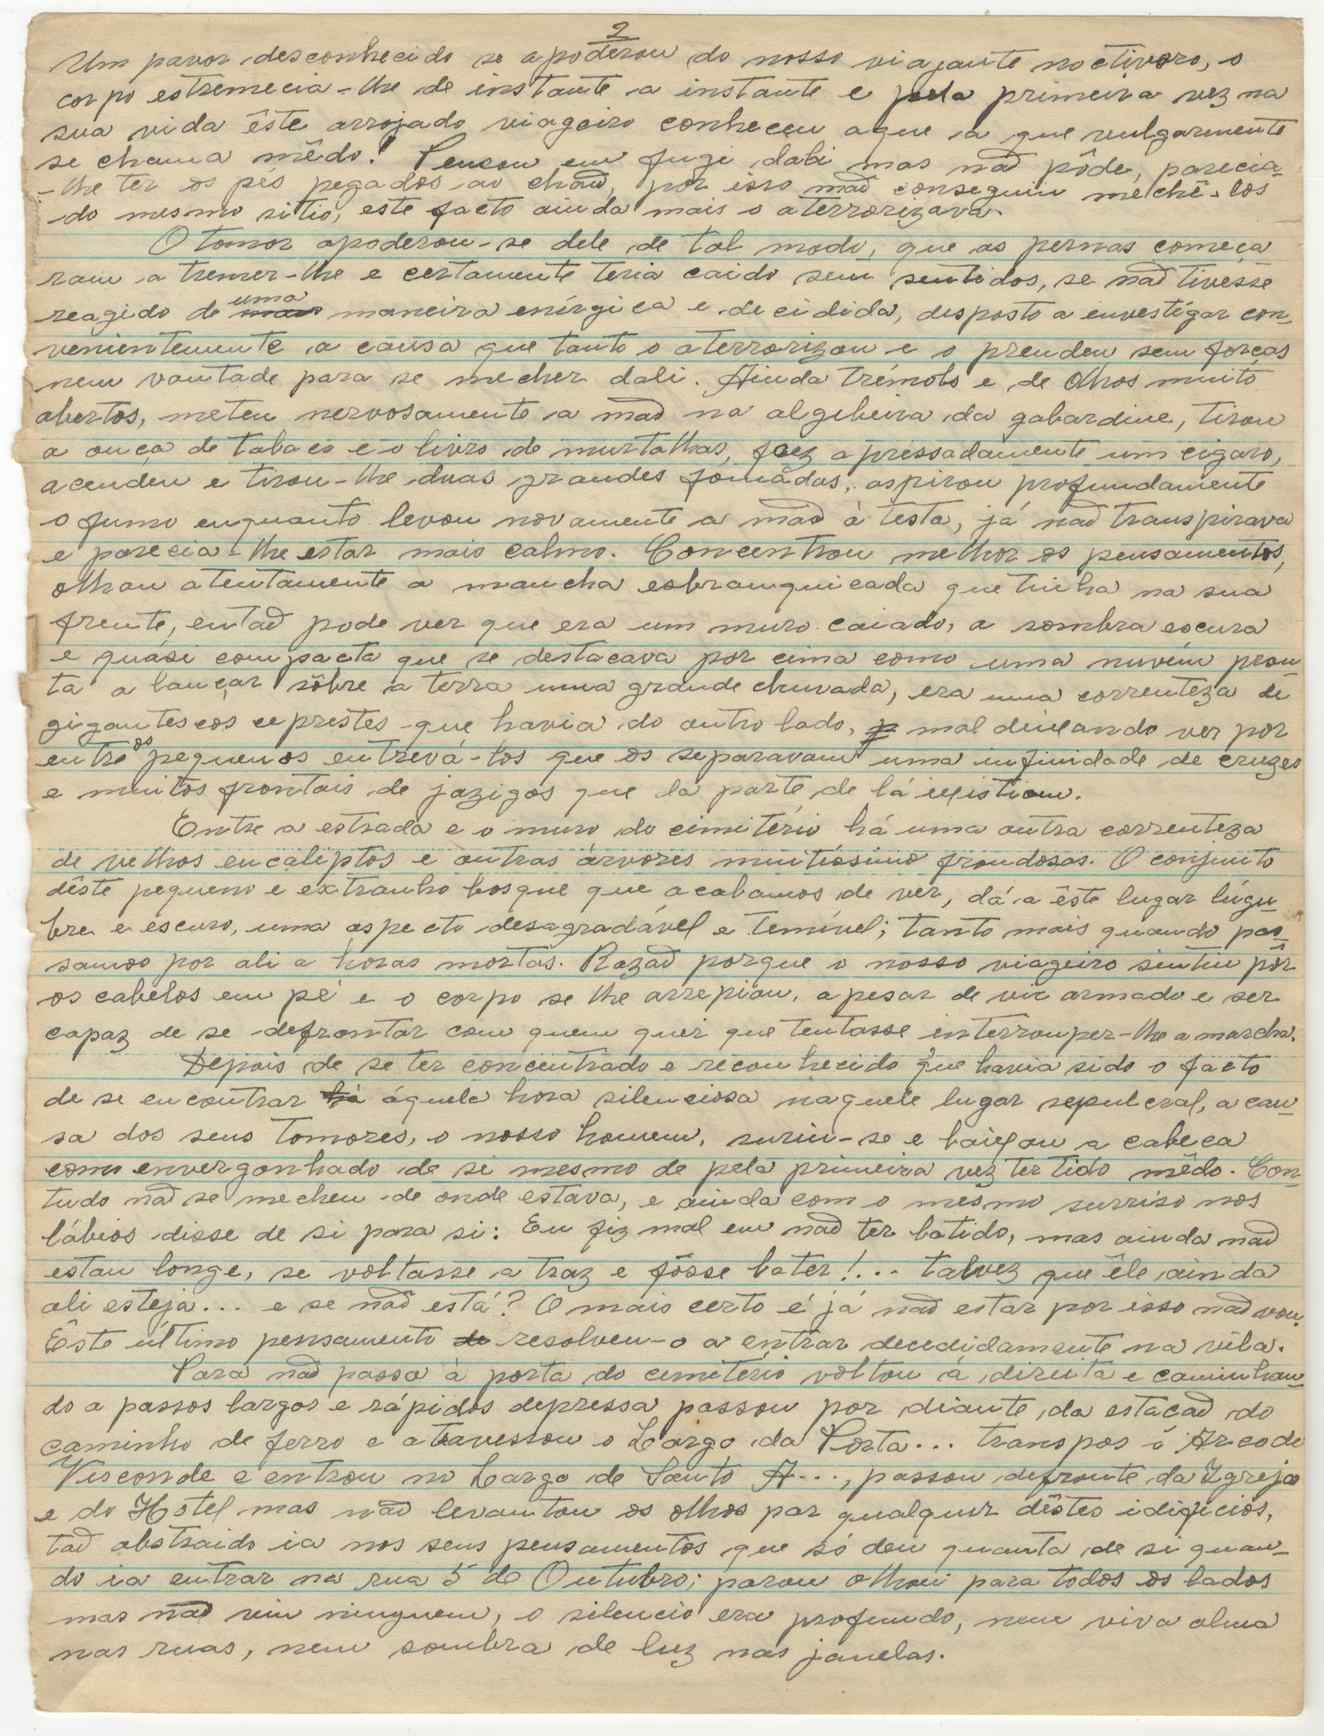 2
Um pavor desconhecido se apoderou do nosso viajante noctivoro, o
corpo estremecia-lhe de instante a instante e pela primeira vez na
sua vida êste arrojado viageiro conheceu aque a que vulgarmente
se chama mêdo! Pensou em fugi dali mas não pôde, parecia-
-lhe ter os pés pegados ao chão, por isso não conseguiu mechê-los
do mesmo sitio, este facto ainda mais o aterrorizava.
O tomor apoderou-se dele de tal modo, que as pernas começa
ram a tremer-lhe e certamente teria caido sem sentidos, se não tivesse
reagido de uma maneira enírgica e decidida, desposto a envestigar con-
venientemente a causa que tanto o aterrorizou e o prendeu sem forças
nem vontade para se mecher dali. Ainda trémolo e de olhos muito
abertos, meteu nervosamente a mão na algibeira da gabardine, tirou
a onça de tabaco e o livro de murtalhas, fez apressadamente um cigaro,
acendeu e tirou-lhe duas grandes fomadas, aspirou profundamente
o fumo enquanto levou novamente a mão à testa, já não transpirava
e parecia-lhe estar mais calmo. Concentrou melhor os pensamentos,
olhou atentamente a mancha esbranquicada que tinha na sua
frente, então pode ver que era um muro caiado, a sombra escura
e quási compacta que se destacava por cima como uma nuvem pron-
ta a lançar sôbre a terra uma grande chuvada, era uma correnteza de
gigantescos ceprestes que havia do outro lado, mal deixando ver por
entre os pequenos entrevá-los que os separavam uma infinidade de cruzes
e muitos frontais de jazigos que la parte de lá ixistiam.
Entre a estrada e o muro do cimitério há uma outra correnteza
de velhos encaliptos e outras árvores muitissimo frondosas. O conjunto
dêste pequeno e extranho bosque que acabamos de ver, dá a êste lugar lúgu-
bre e escuro, uma aspecto desagradável e temível; tanto mais quando pas-
samos por ali a horas mortas. Razão porque o nosso viageiro sentiu pôr
os cabelos em pé e o corpo se lhe arrepiou, apesar de vir armado e ser
capaz de se defrontar com quem quer que tentasse interrouper-lhe a marcha.
Depois de se ter concentrado e reconhecido que havia sido o facto
de se encontrar áquela hora silenciosa naquele lugar sepulcral, a cau-
sa dos seus tomores, o nosso homem, suriu-se e baixou a cabeca
como envergonhado de si mesmo de pela primeira vez ter tido mêdo. Con-
tudo não se mecheu de onde estava, e ainda com o mesmo surriso nos
lábios disse de si para si: Eu fiz mal em não ter batido, mas ainda não
estou longe, se voltasse a traz e fôsse bater!... talvez que êle ainda
ali esteja... e se não está? O mais certo é já não estar por isso não vou.
Êste último pensamento resolveu-o a entrar decedidamente na vila.
Para não passa à porta do cemitério voltou á direita e caminhan-
do a passos largos e rápidos depressa passou por diante da estacão do
caminho de ferro e atravessou o Largo da Porta... transpos o Arco do
Visconde e entrou no Largo de Santo A..., passou defronte da Igreja
e do Hotel mas não levantou os olhos par qualquer dêstes idifícios,
tão abstraido ia nos seus pensamentos que só deu quanta de si quan-
do ia entrar na rua 5 de Outubro; parou olhou para todos os lados
mas não viu ninguem, o silencio era profundo, nem viva alma
nas ruas, nem sombra de luz nas janelas.